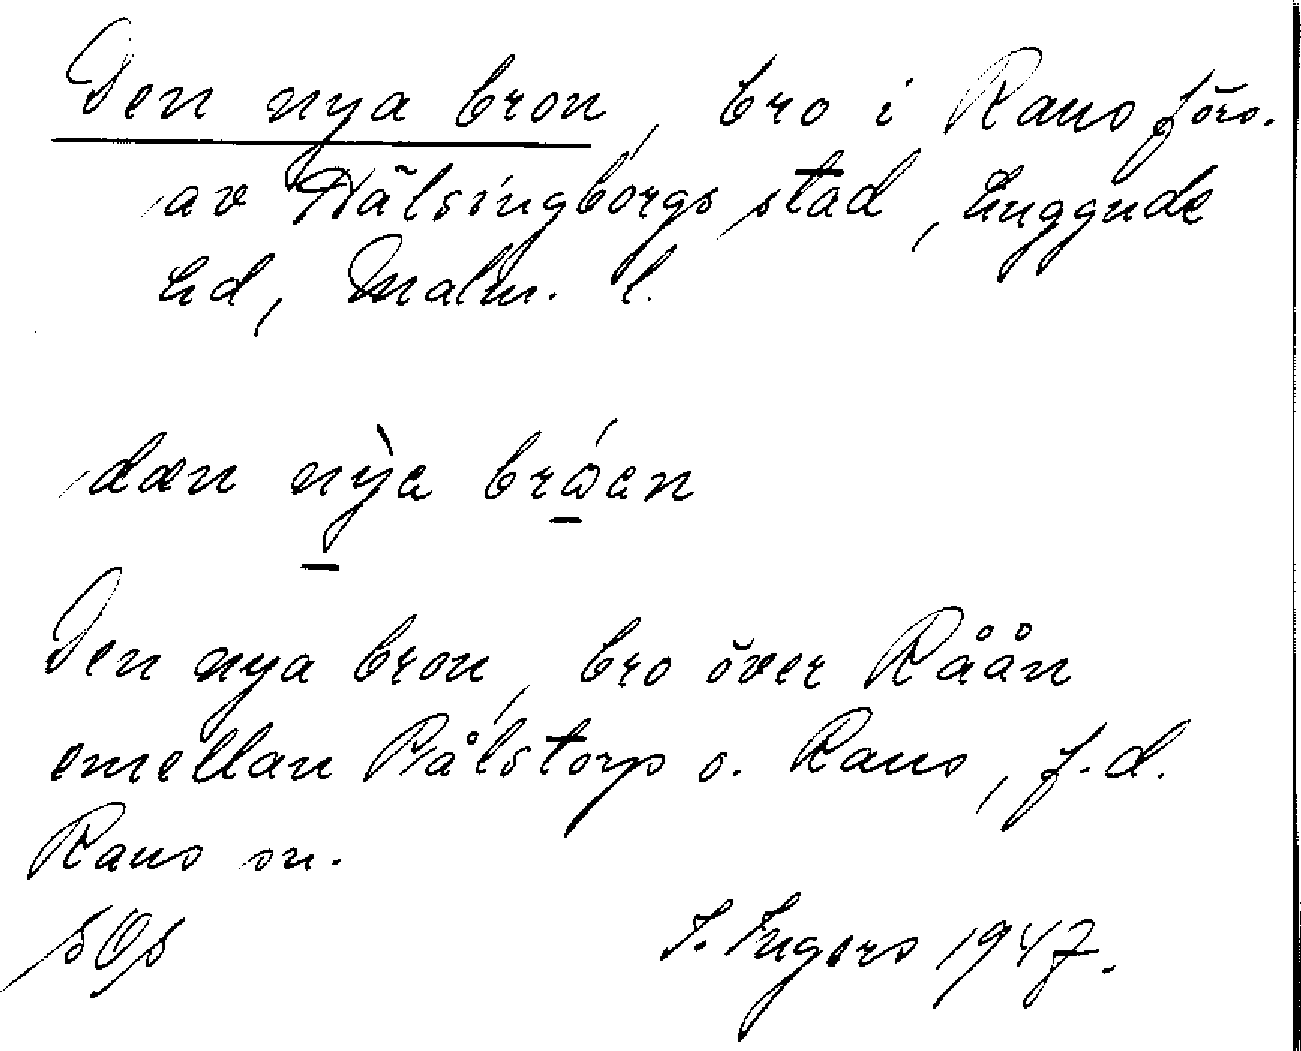 Den nya bron, bro i Raus förs.
av Hälsingborgs stad, Luggude
hd, Malm. l.
dæn nỳa bróen
Den nya bron, bro över Råån
emellan Pålstorp o. Raus, f.d.
Raus sn.
I. Ingers 1947.